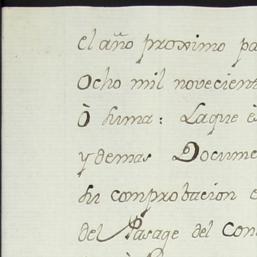 el año proximo pa
Ocho mil novecient
Ò suma: Laque è
y demas Docume
su comprobacion e
del Pasage del Con